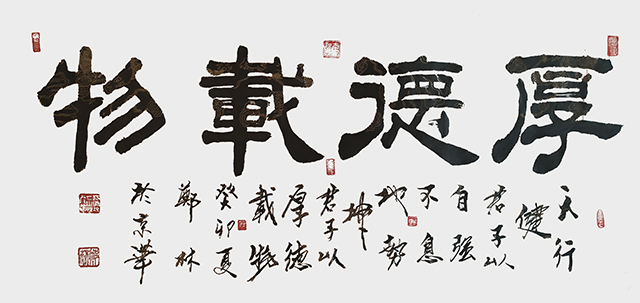 厚德載物
天行
健
君子以
自强
不息
地勢
坤
君子以
厚德
載物
癸卯夏
鄭林
於京華